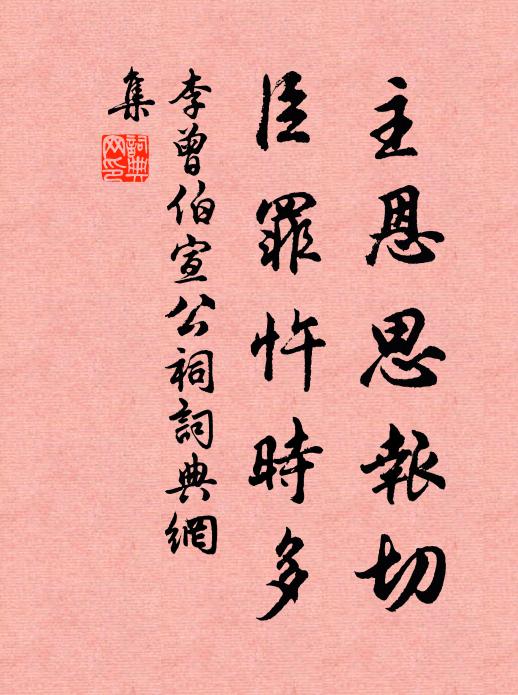 主恩思報切
臣罪忤時多
李曾伯宣公祠詞典網
集
詞典
网印